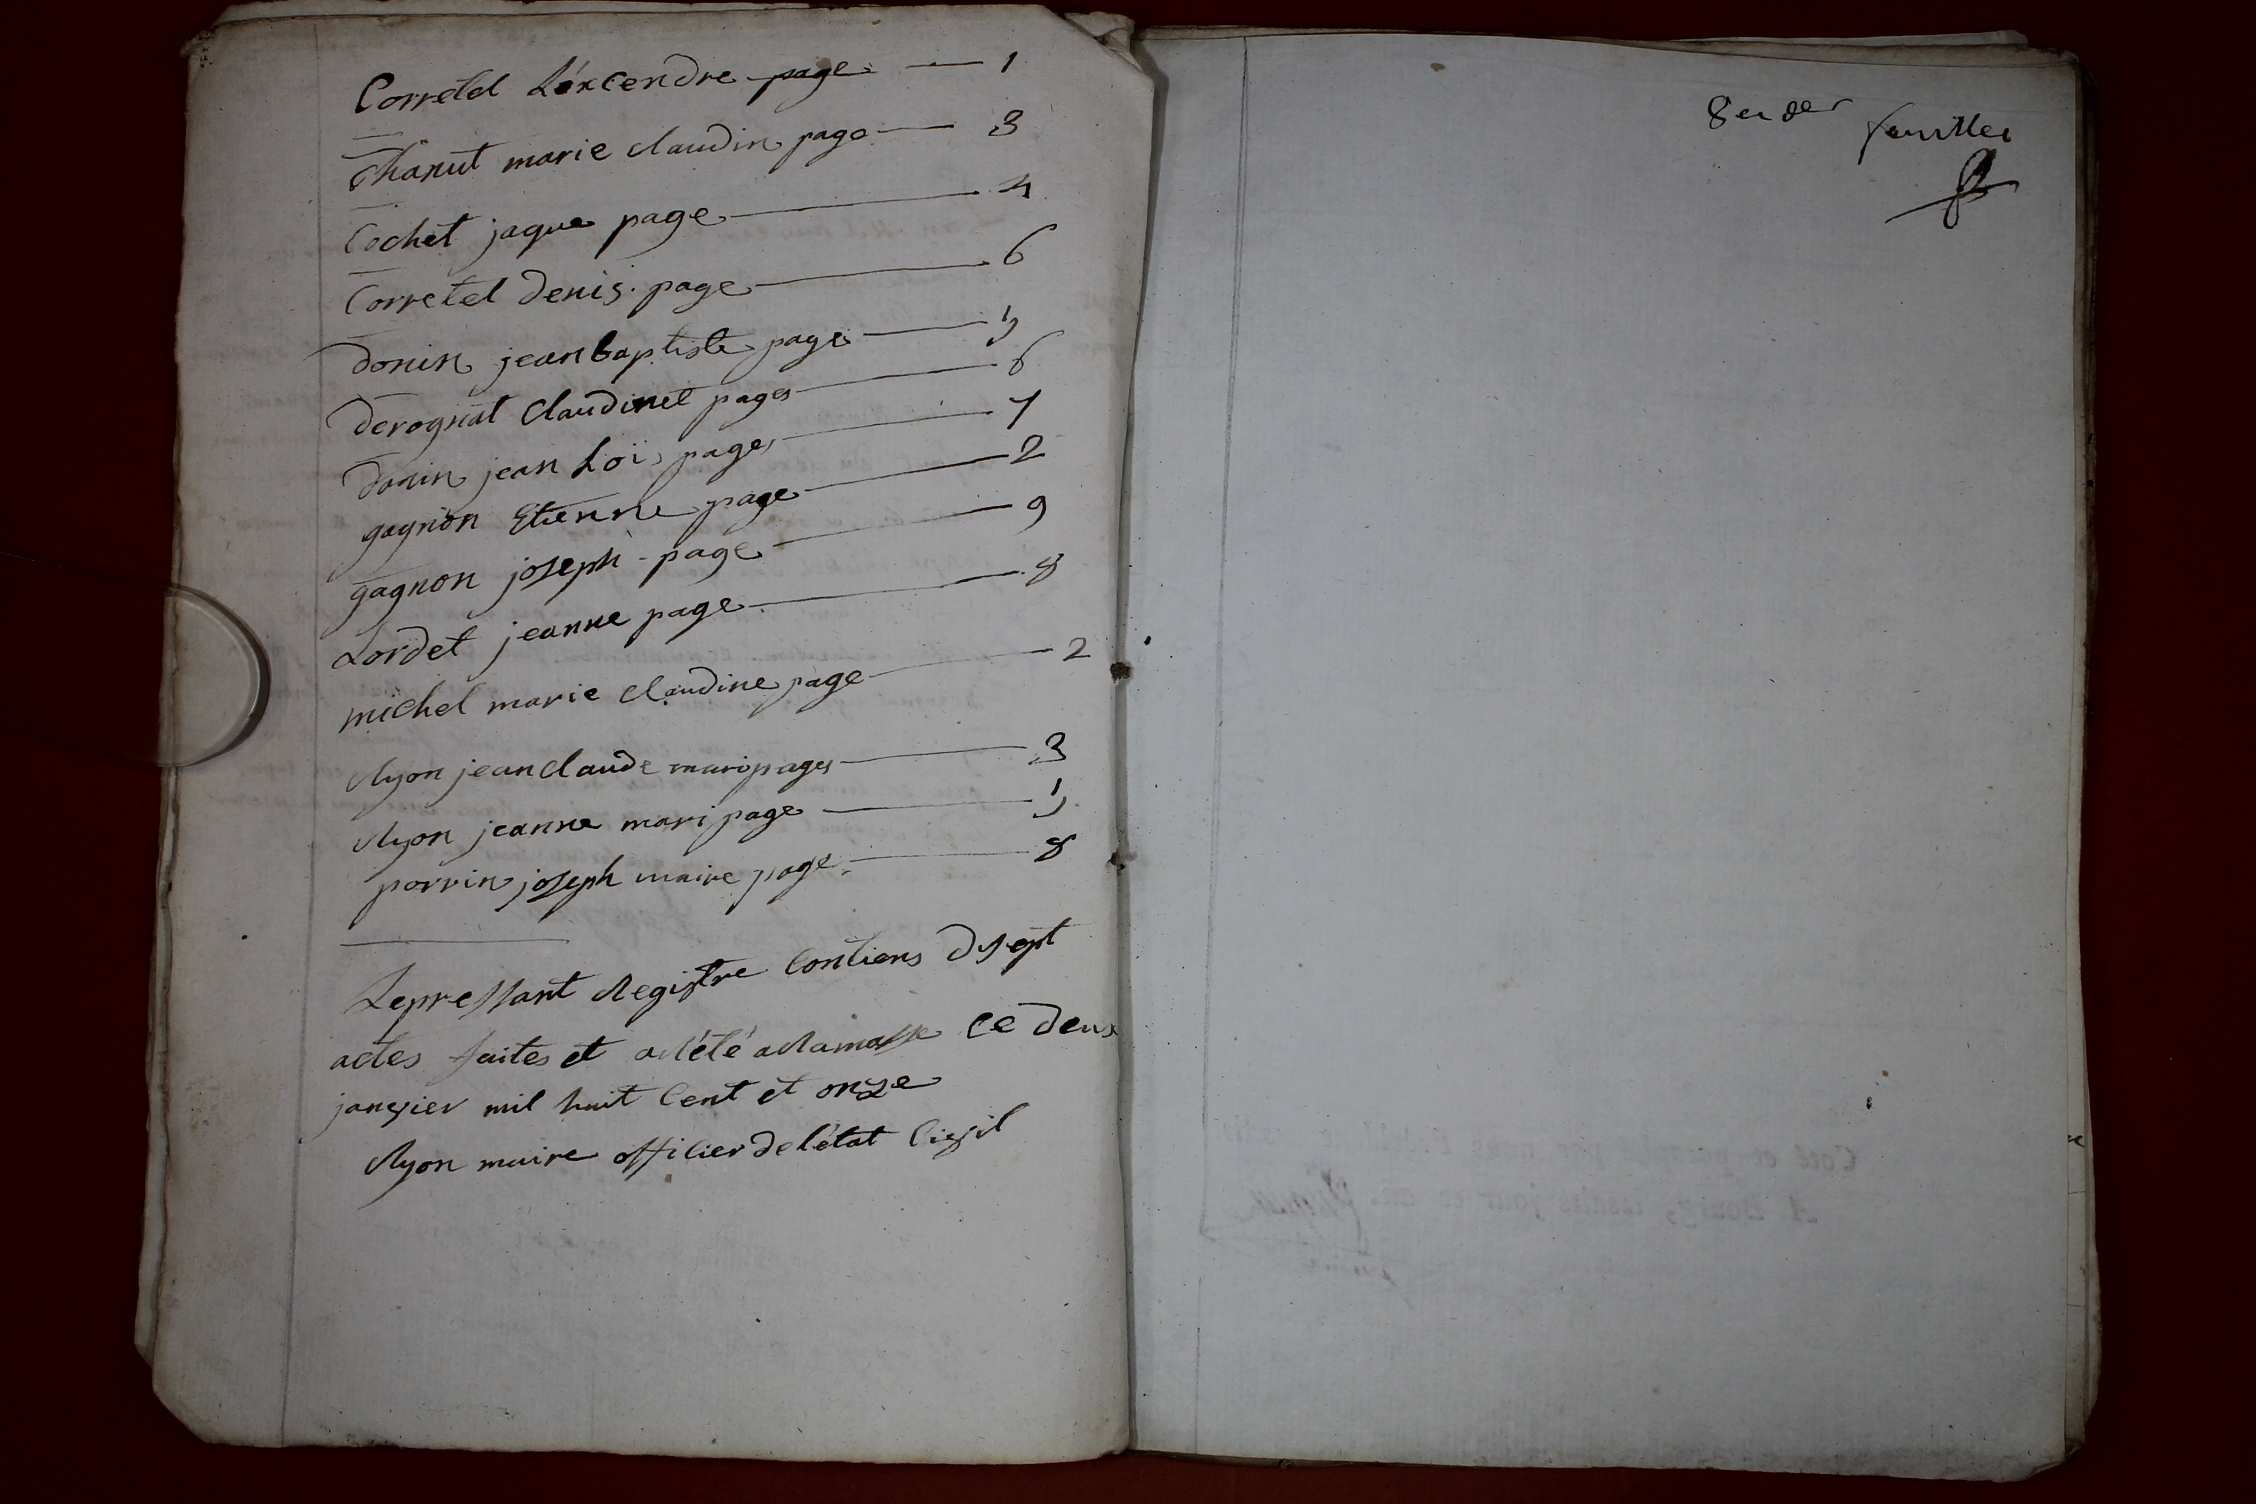 Corretel Léxcendre page — 1
Chanut marie claudin page — 3
Cochet jaque page — 4
Corretel denis. page — 6
donin jean baptiste page — 5
derognat Claudinet pages — 6
donin jean Loïs pages — 7
gagnon Etienne page — 2
gagnon joseph - page — 9
Lordet jeanne page — 8
michel marie Claudine page — 2
Ryon jean Claude mari pages — 3
Ryon jeanne mari page — 5
porrin joseph maire page. — 8
Lepressant Registre Contiens dysept
actes faites et arété a Ramasse Ce deux
janvier mil huit Cent et onze
Ryon maire officier de l'état Civil
8 et der feuillet